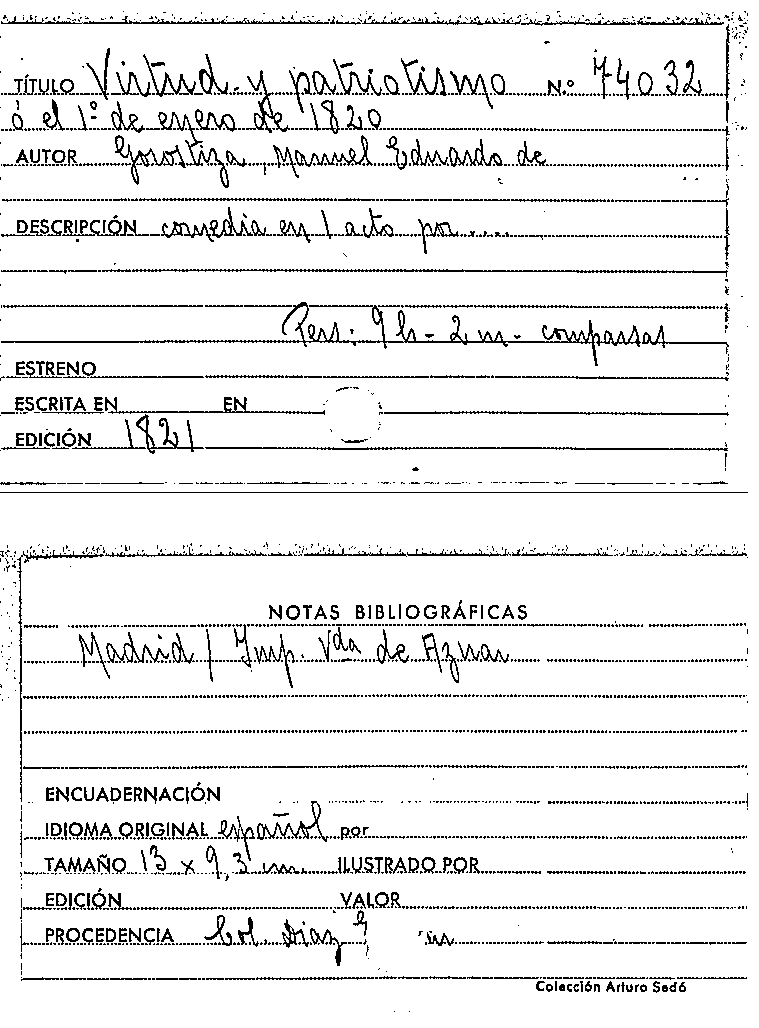 TÍTULO Virtud y patriotismo N.º 74032
ó el 1º de enero de 1820
AUTOR Gorostiza, Manuel Eduardo de
DESCRIPCIÓN comedia en 1 acto por....
Pers: 9 h - 2 m - comparsas
ESTRENO
ESCRITA EN EN
EDICIÓN 1821
NOTAS BIBLIOGRÁFICAS
Madrid / Imp. Vda de Aznar
ENCUADERNACIÓN
IDIOMA ORIGINAL español por
TAMAÑO 13 x 9,3 cm. ILUSTRADO POR
EDICIÓN VALOR
PROCEDENCIA Col. Diaz
Colección Arturo Sedó